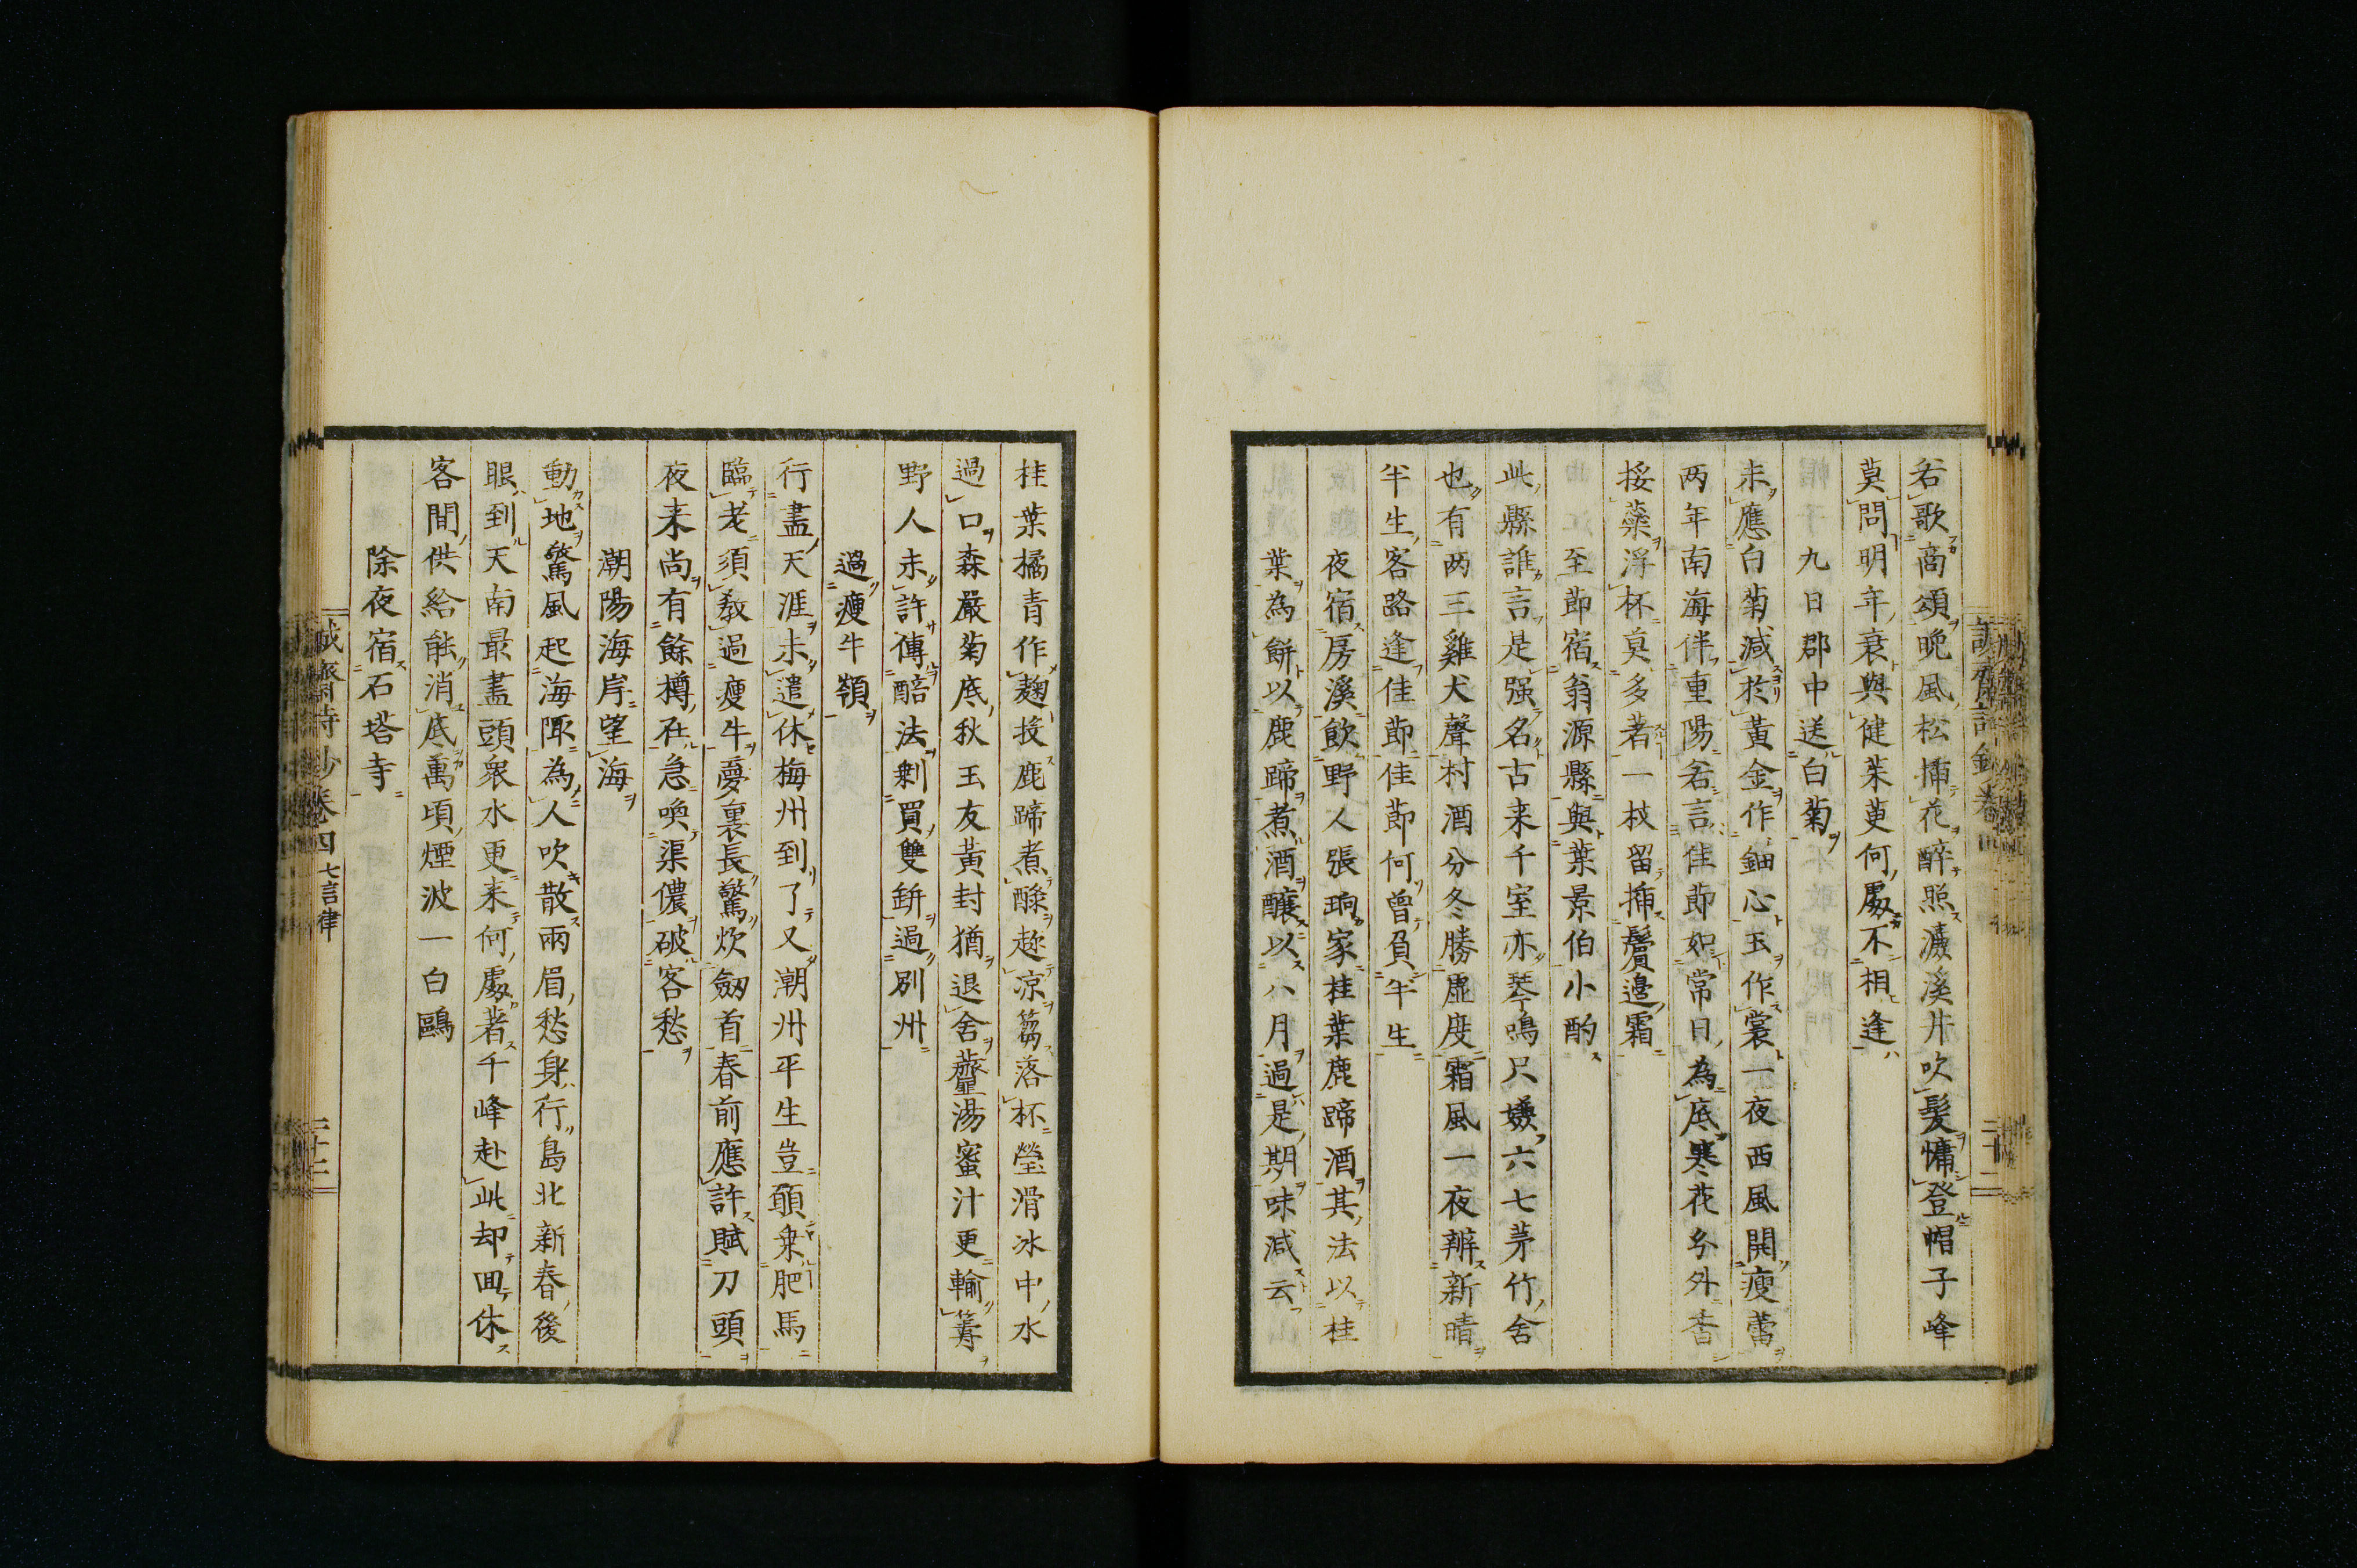 若歌商頌晩風松揷花醉照濂溪井吹髮慵登帽子峰
莫問明年衰與健茱萸何處不相逢
九日郡中送白菊
未應白菊減於黃金作鈿心玉作裳一夜西風開瘦蕾
两年南海伴重陽若言佳節如常日為底寒花分外香
挼蘂浮杯莫多著一枝留揷鬢邊霜
至節宿翁源縣與葉景伯小酌
此縣誰言是强名古来千室亦琴鳴只嫌六七茅竹舍
也有两三雞犬聲村酒分冬勝虛度霜風一夜辦新晴
半生客路逢佳節佳節何曾負半生
夜宿房溪飲野人張珦家桂葉鹿蹄酒其法以桂
葉為餠以鹿蹄煮酒釀以八月過是期味減云
桂葉揉青作麴投鹿蹄煮醁趂凉篘落杯瑩滑冰中水
過口森嚴菊底秋玉友黃封猶退舍虀湯蜜汁更輸籌
野人未許傳醅法剰買雙缾過別州
過瘦牛嶺
行盡天涯未遣休梅州到了又潮州平生豈願乗肥馬
臨老須敎過瘦牛夢裏長驚炊劒首春前應許賦刀頭
夜来尚有餘樽在急喚渠儂破客愁
潮陽海岸望海
動地驚風起海陬為人吹散兩眉愁身行島北新春後
眼到天南最盡頭衆水更来何處著千峰赴此却回休
客間供給能消底萬頃煙波一白鷗
除夜宿石塔寺
誠齋詩鈔卷四 七言律 二十二